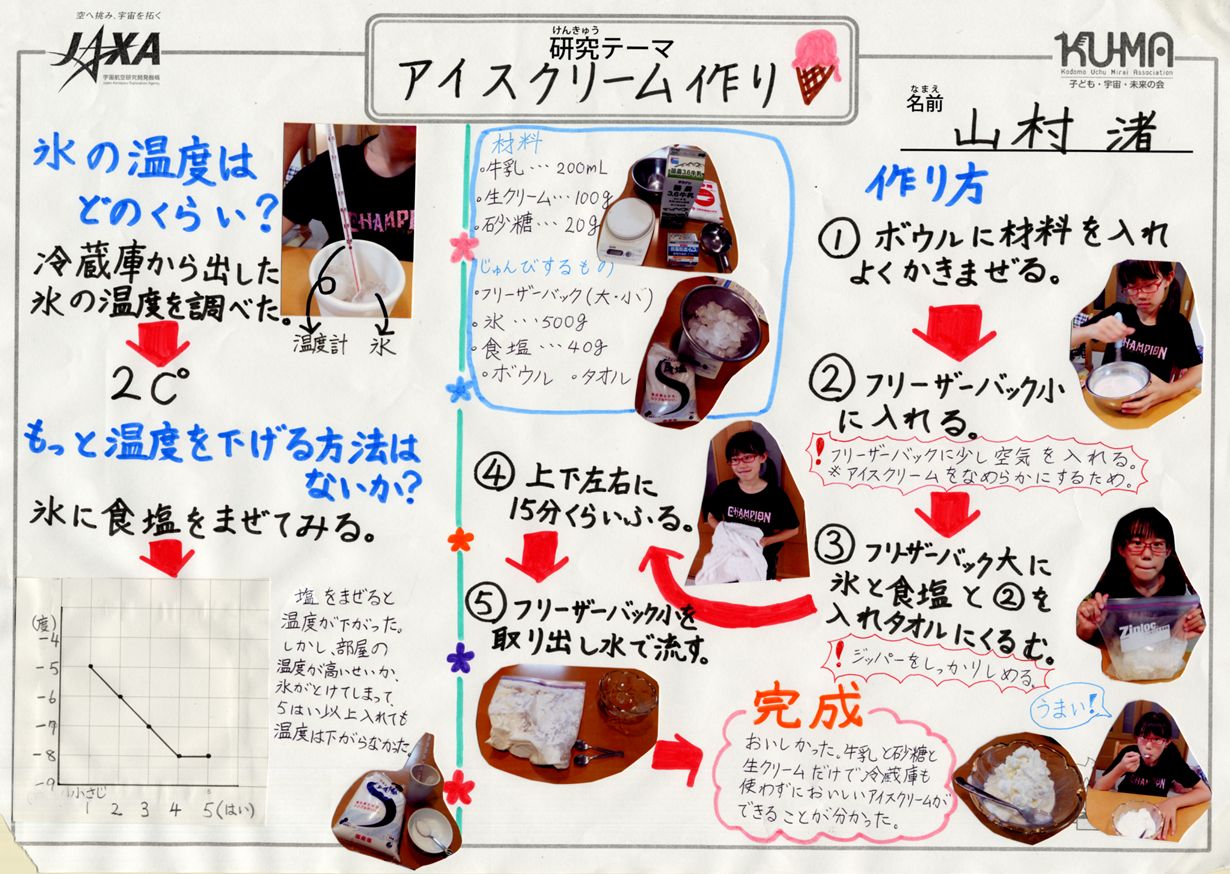 空へ挑み、宇宙を拓く
JAXA
宇宙航空研究開発機構
Japan Aerospace Exploration Agency
けんきゅう
研究テーマ
アイスクリーム作り
KU-MA
Kodomo Uchu Mirai Association
子ども・宇宙・未来の会
なまえ
名前
山村 渚
氷の温度は
どのくらい?
冷蔵庫から出した
氷の温度を調べた。
CHAMPION
温度計
氷
2C°
もっと温度を下げる方法は
ないか?
氷に食塩をまぜてみる。
(度)
-4
-5
-6
-7
-8
-9
小さじ
1 2 3 4 5(はい)
塩をまぜると
温度が下がった。
しかし、部屋の
温度が高いせいか、
氷がとけてしまって
5はい以上入れても
温度は下がらなかった。
材料
・牛乳・・・200mL
・生クリーム・・・100g
・砂糖・・・20g
じゅんびするもの
・フリーザーバック(大・小)
・氷・・・500g
・食塩・・・40g
・ボウル ・タオル
作り方
① ボウルに材料を入れ
よくかきまぜる。
CHAMPION
② フリーザーバック小
に入れる。
! フリーザーバックに少し空気を入れる。
※アイスクリームをなめらかにするため。
③ フリーザーバック大に
氷と食塩と②を
入れタオルにくるむ。
! ジッパーをしっかりしめる。
Ziploc
④ 上下左右に
15分くらいふる。
CHAMPION
⑤ フリーザーバック小を
取り出し水で流す。
完成
おいしかった。牛乳と砂糖と
生クリームだけで冷蔵庫も
使わずにおいしいアイスクリームが
できることが分かった。
うまい!